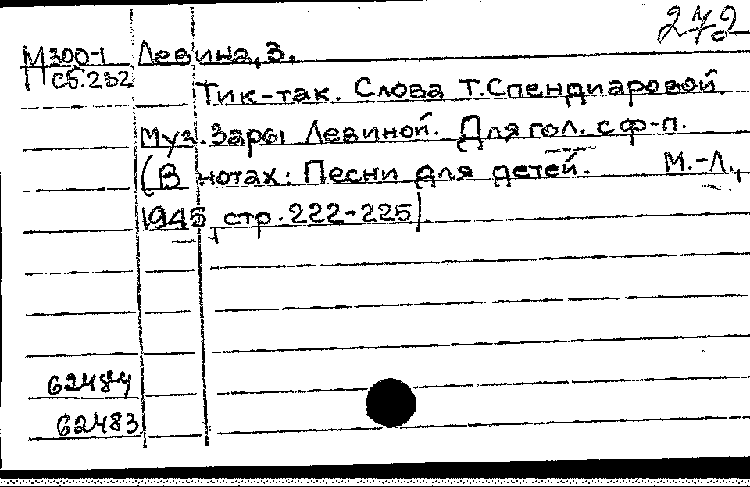 272
М300-1 Левина, З.
Сб.232
Тик-так. Слова Т.Спендиаровой.
Муз. Зары Левиной. Для гол. с ф-п.
(В нотах: Песни для детей. М.-Л.,
1945, стр. 222-225).
62484
62483